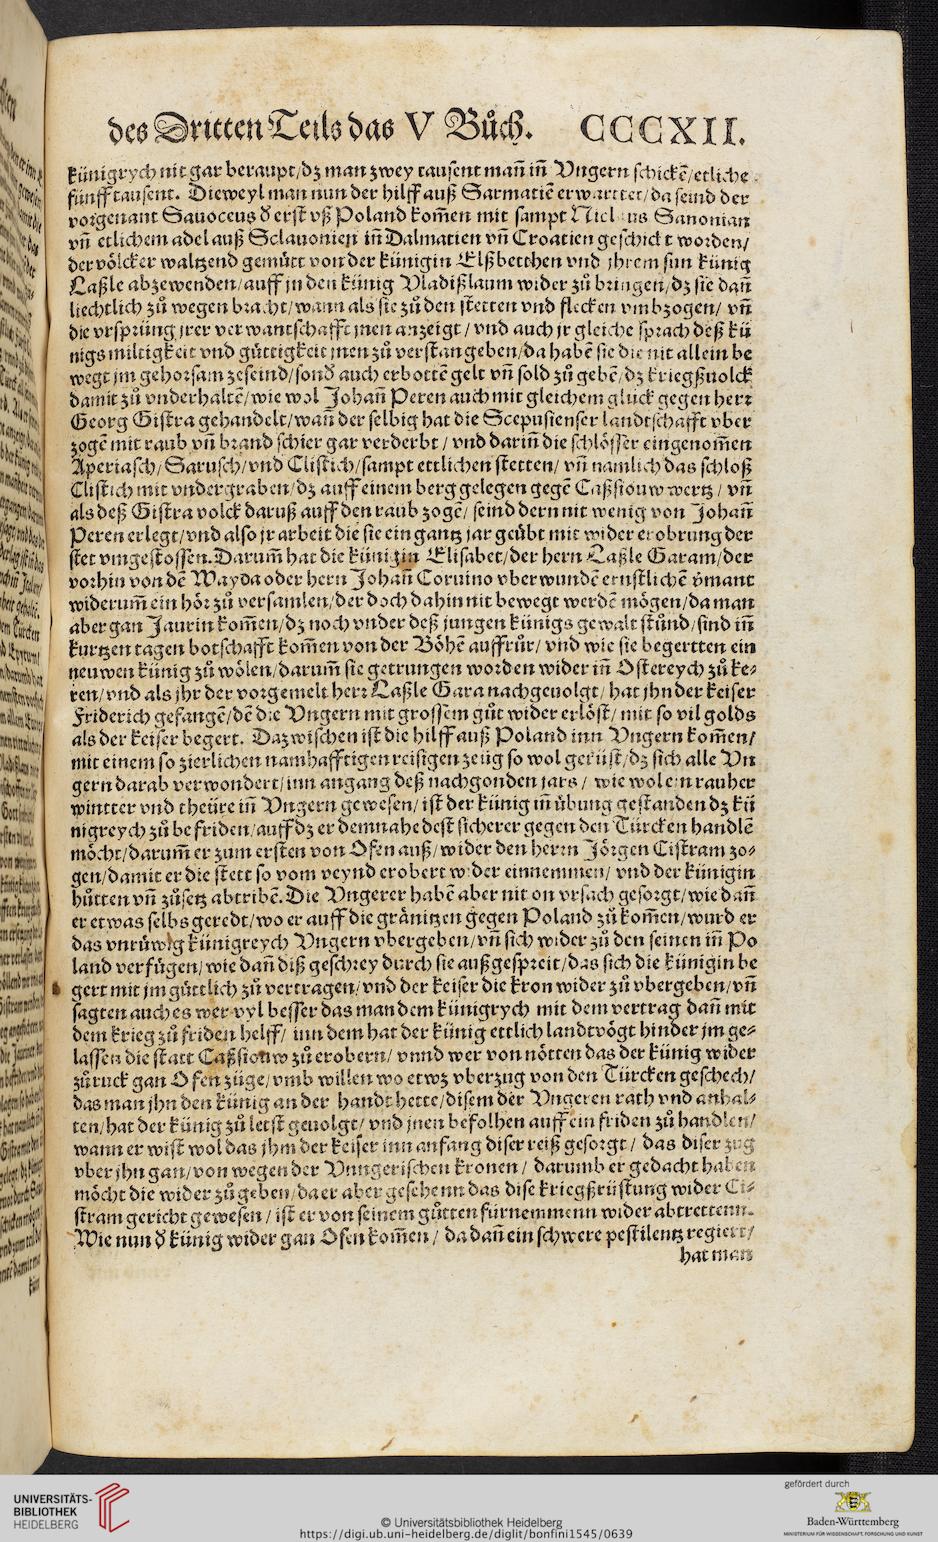 des Dritten Teils das V Bůch. CCCXII.
künigrych nit gar beraupt/dz man zwey tausent mañ iñ Vngern schickē/etliche
fünff tausent. Dieweyl man nun der hilff auß Sarmatiē erwarttet/da seind der
vorgenant Sauoceus ð erst vß Poland kom̄en mit sampt Nicl us Sanonian
vñ etlichem adel auß Sclauonien iñ Dalmatien vñ Croatien geschickt worden/
der völcker waltzend gemütt von der künigin Elßbetthen vnd jhrem sun künig
Laßle abzewenden/auff jn den künig Vladißlaum wider zů bringen/dz sie dañ
liechtlich zů wegen bracht/wann als sie zů den stetten vnd flecken vmbzogen/ vñ
die vrsprüng jrer verwantschafft jnen anzeigt/ vnd auch jr gleiche sprach deß kü
nigs miltigkeit vnd güttigkeit jnen zů verstan geben/da habē sie die nit allein be
wegt jm gehorsam zeseind/sonð auch erbottē gelt vñ sold zů gebē/dz kriegßuolck
damit zů vnderhaltē/wie wol Johañ Peren auch mit gleichem glück gegen herr
Georg Gistra gehandelt/wañ der selbig hat die Scepusienser landtschafft vber
zogē mit raub vñ brand schier gar verderbt/ vnd dariñ die schlösser eingenom̄en
Aperiasch/Sarusch/vnd Clistich/sampt ettlichen stetten/ vñ namlich das schloß
Clistich mit vndergraben/dz auff einem berg gelegen gegē Caßsiouw wertz/ vñ
als deß Gistra volck daruß auff den raub zogē/ seind dern nit wenig von Johañ
Peren erlegt/vnd also jr arbeit die sie ein gantz jar geübt mit wider erobrung der
stet vmgestossen. Darum̄ hat die künigin Elisabet/der hern Laßle Garam/der
vorhin von dē Wayda oder hern Johañ Coruino vberwundē ernstlichē v̄mant
widerum̄ ein hör zů versamlen/der doch dahin nit bewegt werdē mögen/da man
aber gan Jaurin kom̄en/dz noch vnder deß jungen künigs gewalt stůnd/sind iñ
kurtzen tagen botschafft kom̄en von der Böhē auffrůr/ vnd wie sie begertten ein
neuwen künig zů wölen/darum̄ sie getrungen worden wider iñ Ostereych zů ke⸗
ren/vnd als jhr der vorgemelt herr Laßle Gara nachgeuolgt/hat jhn der keiser
Friderich gefangē/dē die Vngern mit grossem gůt wider erlöst/mit so vil golds
als der keiser begert. Dazwischen ist die hilff auß Poland inn Vngern kom̄en/
mit einem so zierlichen namhafftigen reisigen zeüg so wol gerüst/dz sich alle Vn
gern darab verwondert/inn angang deß nachgonden jars/ wie wol ein rauher
wintter vnd theüre iñ Vngern gewesen/ist der künig iñ übung gestanden dz kü
nigreych zů befriden/auff dz er demnahe dest sicherer gegen den Türcken handlē
möcht/darum̄ er zum ersten von Ofen auß/wider den herrn Jörgen Cistram zo⸗
gen/damit er die stett so vom veynd erobert wider einnemmen/ vnd der künigin
hütten vñ zůsetz abtribē. Die Vngerer habē aber nit on vrsach gesorgt/wie dañ
er etwas selbs geredt/wo er auff die gränitzen gegen Poland zů kom̄en/wurd er
das vnrüwig künigreych Vngern vbergeben/vñ sich wider zů den seinen iñ Po
land verfügen/wie dañ diß geschrey durch sie außgespreit/das sich die künigin be
gert mit jm güttlich zů vertragen/vnd der keiser die kron wider zů vbergeben/vñ
sagten auch es wer vyl besser das man dem künigrych mit dem vertrag dañ mit
dem krieg zů friden helff/ inn dem hat der künig ettlich landtvögt hinder jm ge⸗
lassen die statt Caßsiouw zů erobern/ vnnd wer von nötten das der künig wider
zůruck gan Ofen züge/vmb willen wo etwz vberzug von den Türcken geschech/
das man jhn den künig an der handt hette/disem der Vngeren rath vnd anhal⸗
ten/hat der künig zů letst geuolgt/ vnd jnen befolhen auff ein friden zů handlen/
wann er wist wol das jhm der keiser inn anfang diser reiß gesorgt/ das diser zug
vber jhn gan/von wegen der Vnngerischen kronen/ darumb er gedacht haben
möcht die wider zů geben/da er aber gesehenn das dise kriegßrüstung wider Ci⸗
stram gericht gewesen/ist er von seinem gůtten fürnemmenn wider abtrettenn.
Wie nun ð künig wider gan Ofen kom̄en/ da dañ ein schwere pestilentz regiert/
hat man
UNIVERSITÄTS-
BIBLIOTHEK
HEIDELBERG
© Universitätsbibliothek Heidelberg
https://digi.ub.uni-heidelberg.de/diglit/bonfini1545/0639
gefördert durch
Baden-Württemberg
MINISTERIUM FÜR WISSENSCHAFT, FORSCHUNG UND KUNST